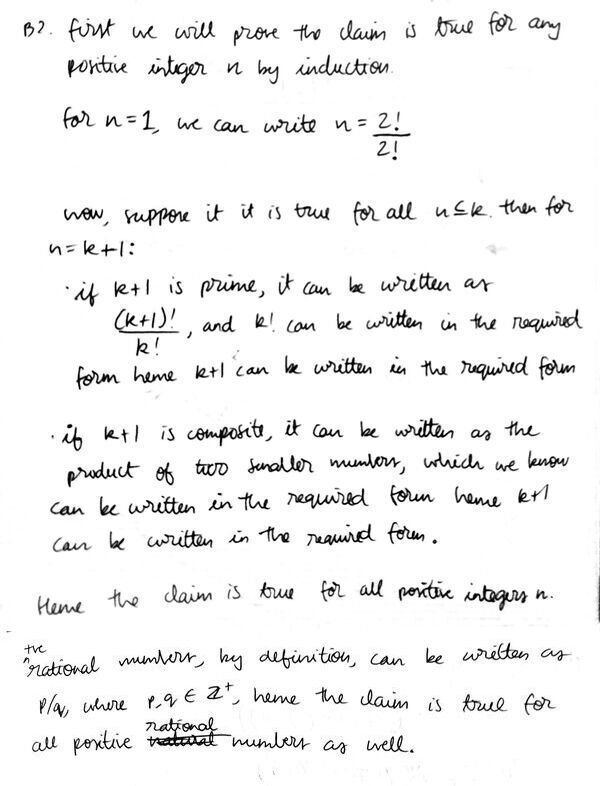 B2. first we will prove the claim is true for any
positive integer n by induction.
for n=1, we can write n = 2!/2!
now, suppose it it is true for all n≤k. then for
n=k+1:
· if k+1 is prime, it can be written as
(k+1)!/k! , and k! can be written in the required
form hence k+1 can be written in the required form
· if k+1 is composite, it can be written as the
product of two smaller numbers, which we know
can be written in the required form hence k+1
can be written in the required form.
Hence the claim is true for all positive integers n.
+ve
^rational numbers, by definition, can be written as
p/q, where p,q ∈ Z⁺, hence the claim is true for
rational
all positive natural numbers as well.